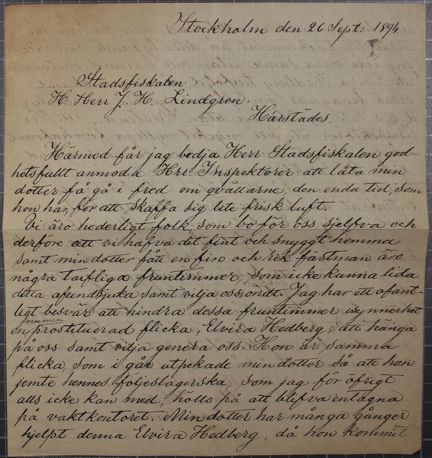 Stockholm den 26 Sept: 1894
Stadsfiskalen
H. Herr J. H. Lindgron.
Härstädes.
Härmed får jag bedja Herr Stadsfiskalen god-
hetsfullt anmoda Hrr Inspektörer att låta min
dotter få gå i fred om qvällarne, den enda tid, som
hon har, för att skaffa sig lite frisk luft.
Vi äro hederligt folk, som bo för oss sjelfva och
derföre att vi hafva det fint och snyggt hemma
samt min dotter fått en fin och rik fästman äro
några tarfliga fruntimmer, som icke kunna lida
detta afundsjuka samt vilja oss ondt. Jag har ett ofant-
ligt besvär att hindra dessa fruntimmer isynnerhet
en prostituerad flicka, Elvira Hedberg, att hänga
på oss samt vilja genera oss. Hon är samma
flicka, som i går utpekade min dotter så att hon
jemte hennes följeslagerska, som jag för öfrigt
alls icke kan med, hölls på att blifva intagna
på vaktkontoret. Min dotter har många gånger
hjelpt denna Elvira Hedberg, då hon kommit